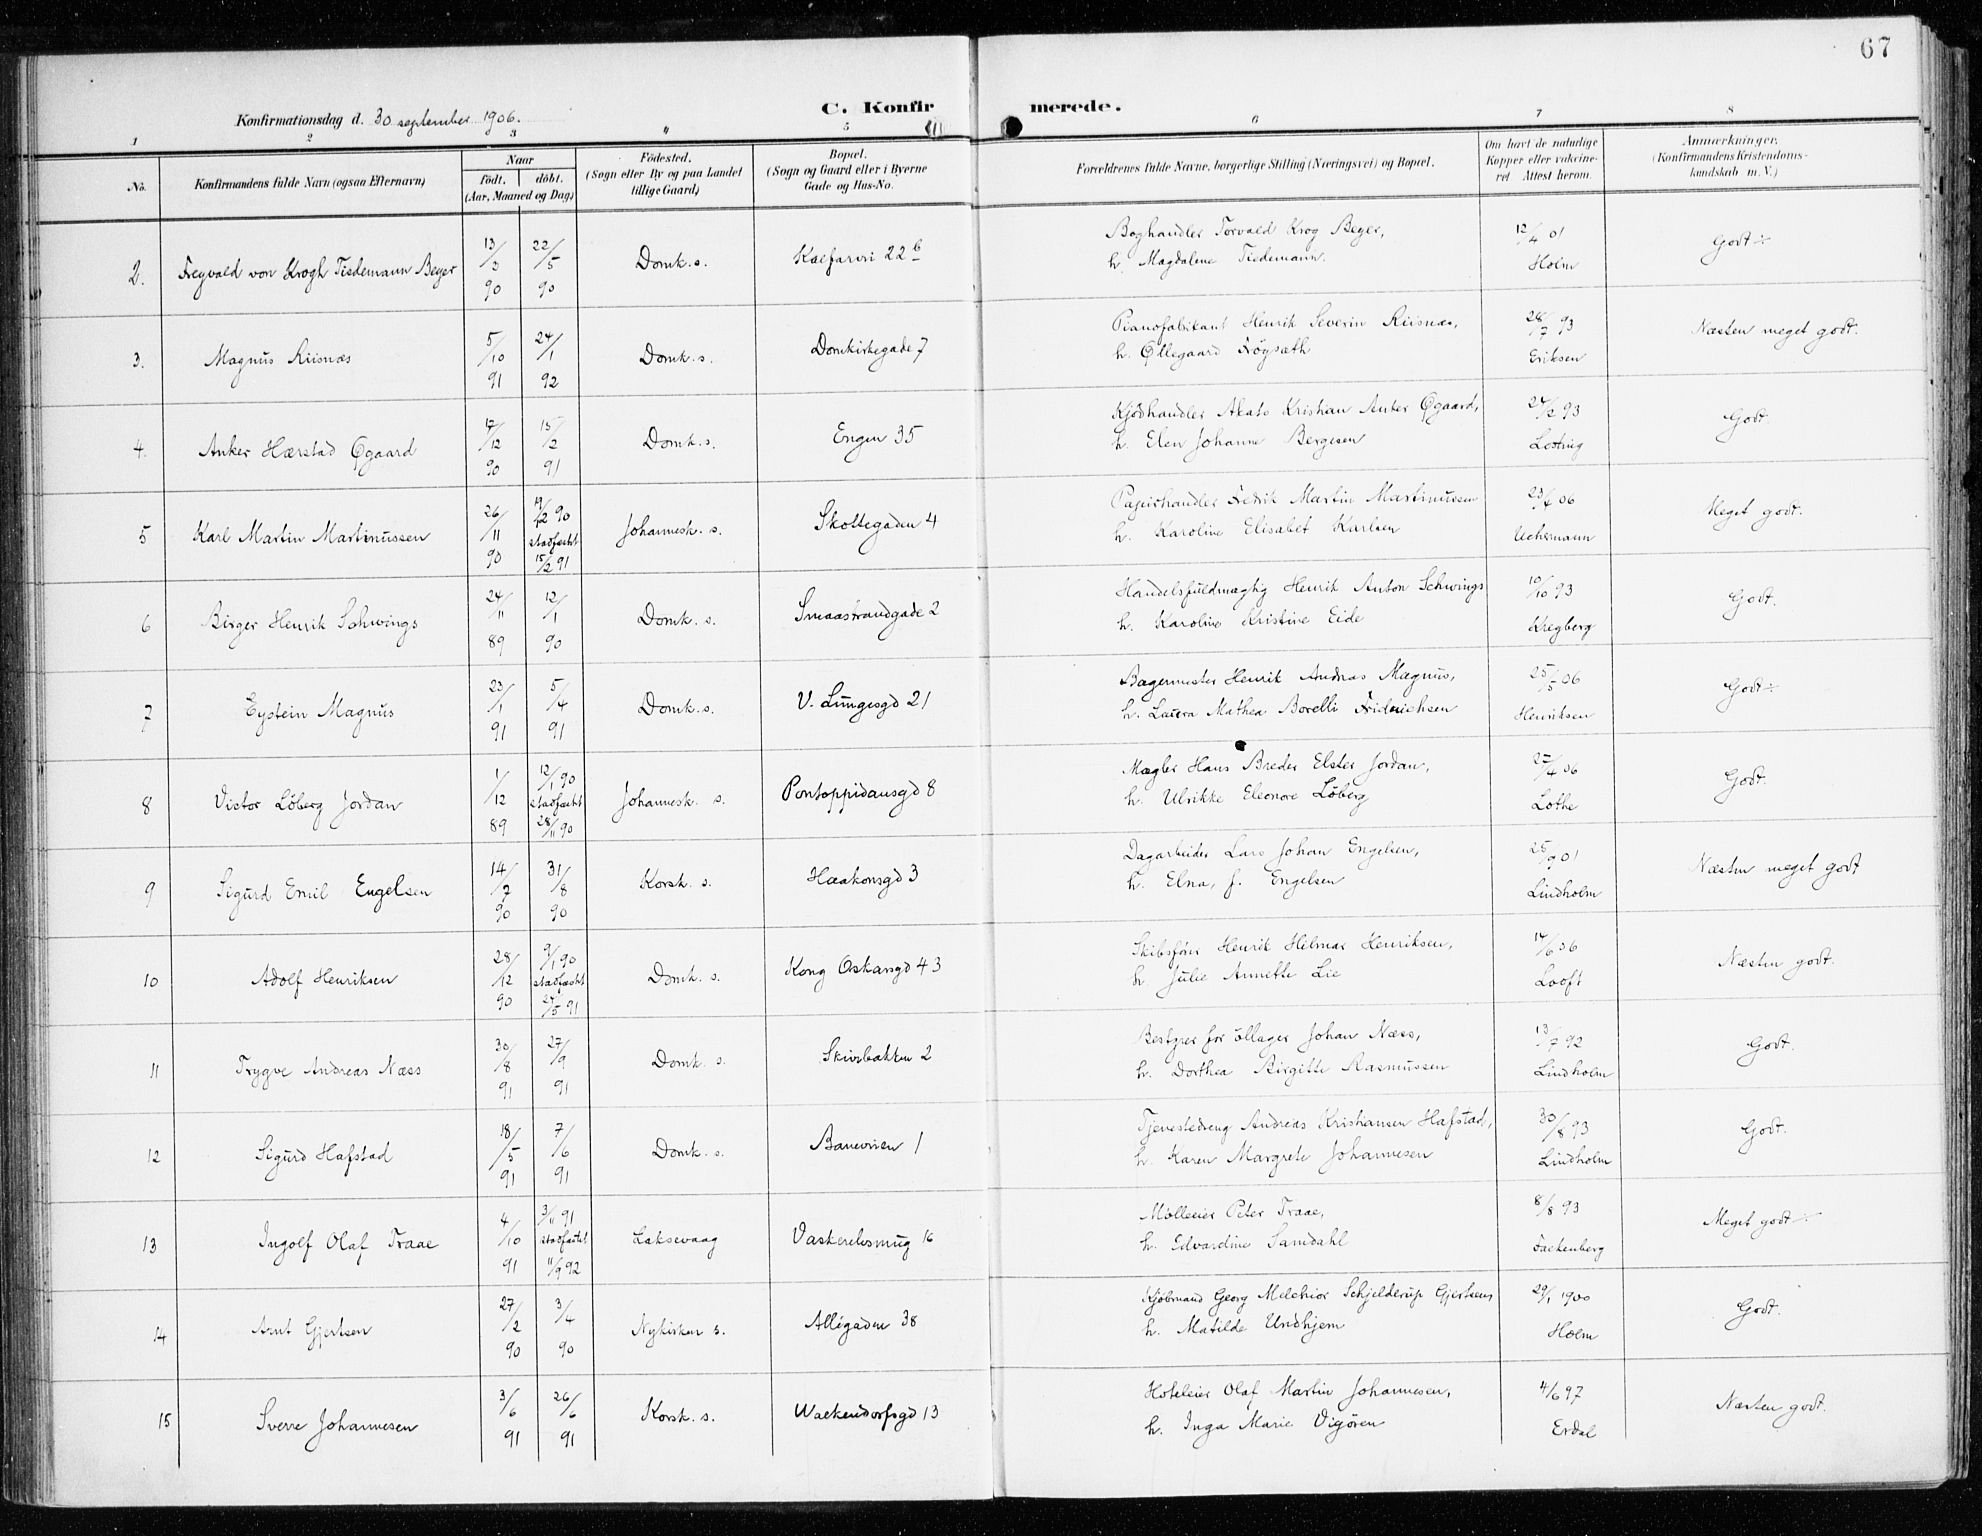 67
C. Konfirmerede.
Konfirmationsdag d. 30 september 1906.
1 2 3 4 5 6 7 8
No.
Konfirmandens fulde Navn (ogsaa Efternavn)
Naar
født. døbt.
(Aar, Maaned og Dag)
Fødested.
(Sogn eller By og paa Landet
tillige Gaard)
Bopæl.
(Sogn og Gaard eller i Byerne
Gade og Hus-No.
Forældrenes fulde Navne, borgerlige Stilling (Næringsvei) og Bopæl.
Om havt de naturlige
Kopper eller vakcine-
ret Attest herom.
Anmærkninger.
(Konfirmandens Kristendoms-
kundskab m. V.)
2. Freyvald von Krogh Tiedemann Beyer 13/3 90 22/5 90 Domk. s. Kalfarvei 22 b
Boghandler Torvald Krog Beyer, 12/4 01 Godt ÷
h. Magdalene Tiedemann. Holm
3. Magnus Riisnæs 5/10 91 24/1 92 Domk. s. Domkirkegade 7
Pianofabrikant Henrik Severin Riisnæs, 28/7 93 Næsten meget godt.
h. Øllegaard Frøysæth Eriksen
4. Anker Hærstad Øgaard 17/12 90 15/2 91 Domk. s. Engen 35
Kjødhandler Akato Kristian Anker Øgaard, 24/2 93 Godt.
h. Elen Johanne Bergesen Lotting
5 Karl Martin Martinussen 26/11 90 19/12 90 stadfæstet 15/2 91 Johannesk. s. Skottegaden 4
Papirhandler Fedrik Martin Martinussen 23/6 06 Meget godt.
h. Karoline Elisabet Karlsen Uchermann
6 Birger Henrik Schwings 24/11 89 12/1 90 Domk. s. Smaastrandgade 2
Handelsfuldmægtig Henrik Anton Schwings 10/10 93 Godt.
h. Karoline Kristine Eide Kregberg
7 Eystein Magnus 23/1 91 5/4 91 Domk. s. V. Lungegd 21
Bagermester Henrik Andreas Magnus, 25/5 06 Godt ÷
h. Laura Mathea Borelli Fridrichsen Henriksen
8 Victor Løberg Jordan 1/12 89 12/1 90 stadfæstet 28/11 90 Johannesk. s. Pontoppidansgd 8
Mægler Hans Breder Elster Jordan, 25/4 06 Godt.
h. Ulrikke Eleonore Løberg Lothe
9 Sigurd Emil Engelsen 14/7 90 31/8 90 Korsk. s. Haakonsgd 3
Dagarbeider Lars Johan Engelsen, 25/9 01 Næsten meget godt
h. Elna, f. Engelsen Lindholm
10 Adolf Henriksen 28/12 90 9/1 90 stadfæstet 24/5 91 Domk. s. Kong Oskarsgd 43
Skibsfører Henrik Hilmar Henriksen, 14/6 06 Næsten godt.
h. Julie Annette Lie Looft
11 Trygve Andreas Næss 30/8 91 27/9 91 Domk. s. Skivebakken 2
Bestyrer for øllager Johan Næss, 13/7 92 Godt.
h. Dorthea Birgitte Rasmussen Lindholm
12 Sigurd Hafstad 18/5 91 7/6 91 Domk. s. Baneveien 1
Tjenestedreng Andreas Kristiansen Hafstad, 30/8 93 Godt.
h. Karen Margrete Johannesen Lindholm
13 Ingolf Olaf Traae 4/10 91 3/11 91 stadfæstet 11/9 92 Laksevaag Vaskerelvsmug 16
Mølleeier Peter Traae, 8/8 93 Meget godt ÷
h. Edvardine Samdahl Fackenberg
14 Arnt Gjertsen 27/2 90 3/4 90 Nykirken s. Allégaden 38
Kjøbmand Georg Melchior Schjelderup Gjertsen, 29/1 1900 Godt.
h. Matilde Undhjem Holm
15 Sverre Johannesen 3/6 91 26/6 91 Korsk. s. Walckendorfsgd 13
Hoteleier Olaf Martin Johannesen, 4/6 97 Næsten godt.
h. Inga Marie Vigøren Erdal